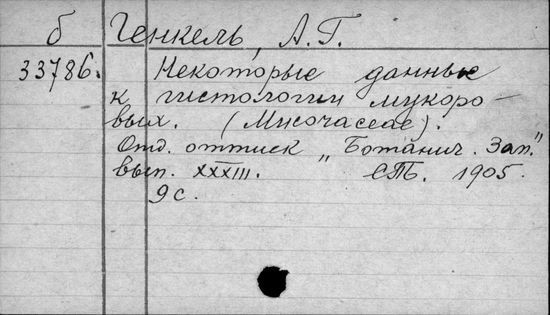 б Генкель, А.Г.
33786. Некоторые данные
к гистологии мукоро-
вых. (Mucoraceae).
Отд. оттиск „Ботанич. Зап."
вып. XXXIII. СПб. 1905.
9 с.